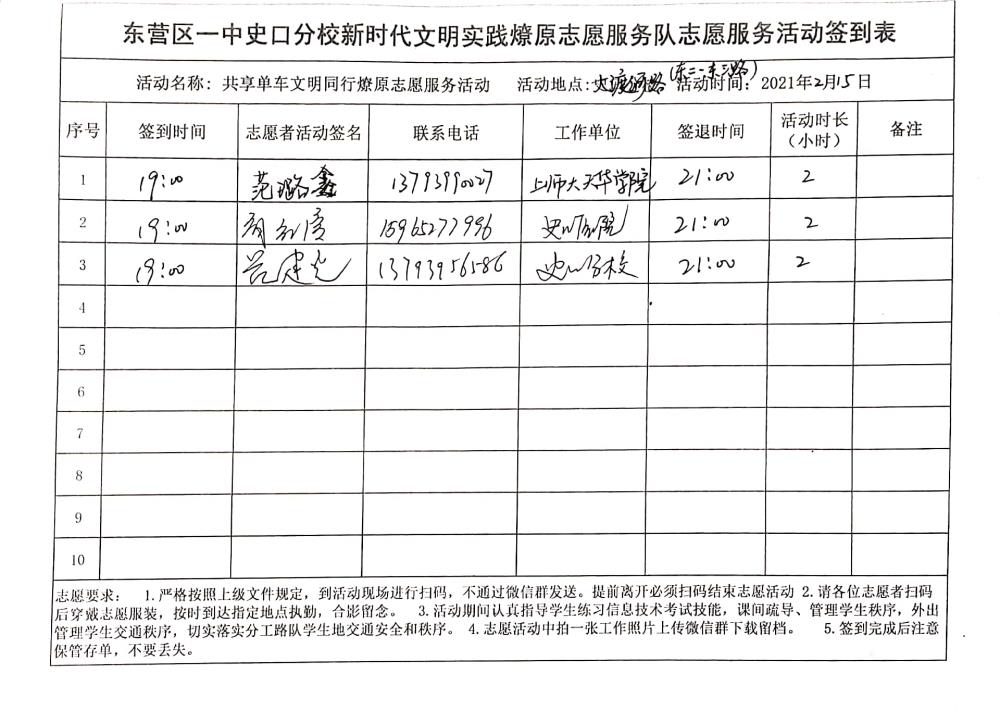 东营区一中史口分校新时代文明实践燎原志愿服务队志愿服务活动签到表
活动名称：共享单车文明同行燎原志愿服务活动 活动地点：大渡河路（东二-东三路） 活动时间：2021年2月15日
序号 签到时间 志愿者活动签名 联系电话 工作单位 签退时间 活动时长（小时） 备注
1 19:00 范璐鑫 13793990027 上师大天华学院 21:00 2
2 19:00 15965277996 21:00 2
3 19:00 吕建光 13793956586 史口分校 21:00 2
4
5
6
7
8
9
10
志愿要求： 1.严格按照上级文件规定，到活动现场进行扫码，不通过微信群发送。提前离开必须扫码结束志愿活动 2.请各位志愿者扫码
后穿戴志愿服装，按时到达指定地点执勤，合影留念。 3.活动期间认真指导学生练习信息技术考试技能，课间疏导、管理学生秩序，外出
管理学生交通秩序，切实落实分工路队学生地交通安全和秩序。4.志愿活动中拍一张工作照片上传微信群下载留档。 5.签到完成后注意
保管存单，不要丢失。